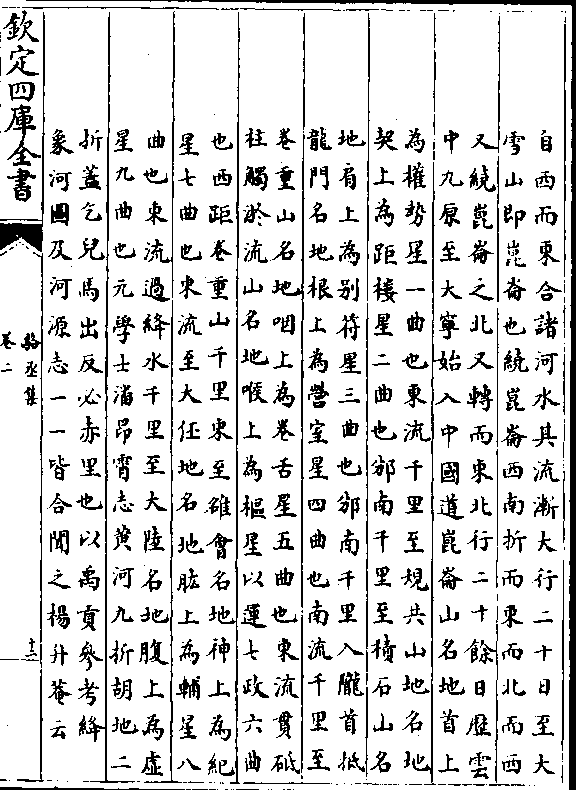 自西而東合諸河水其流漸大行二十日至大
雪山即崑崙也繞崑崙西南折而東而北而西
又繞崑崙之北又轉而東北行二十餘日歷雲
中九原至大寧始入中國道崑崙山名地首上
為權勢星一曲也東流千里至規共山地名地
契上為距樓星二曲也邠南千里至積石山名
地肩上為別符星三曲也邠南千里入隴首抵
龍門名地根上為營室星四曲也南流千里至
卷重山名地咽上為卷舌星五曲也東流貫砥
柱觸於流山名地喉上為樞星以運七政六曲
也西距卷重山千里東至雒會名地神上為紀
星七曲也東流至大伾地名地肱上為輔星八
曲也東流過絳水千里至大陸名地腹上為虛
星九曲也元學士潘昂霄志黃河九折胡地二
折蓋乞兒馬出反必赤里也以禹貢參考絳
象河圖及河源志一一皆合聞之楊升菴云
欽定四庫全書
駱丞集
卷二